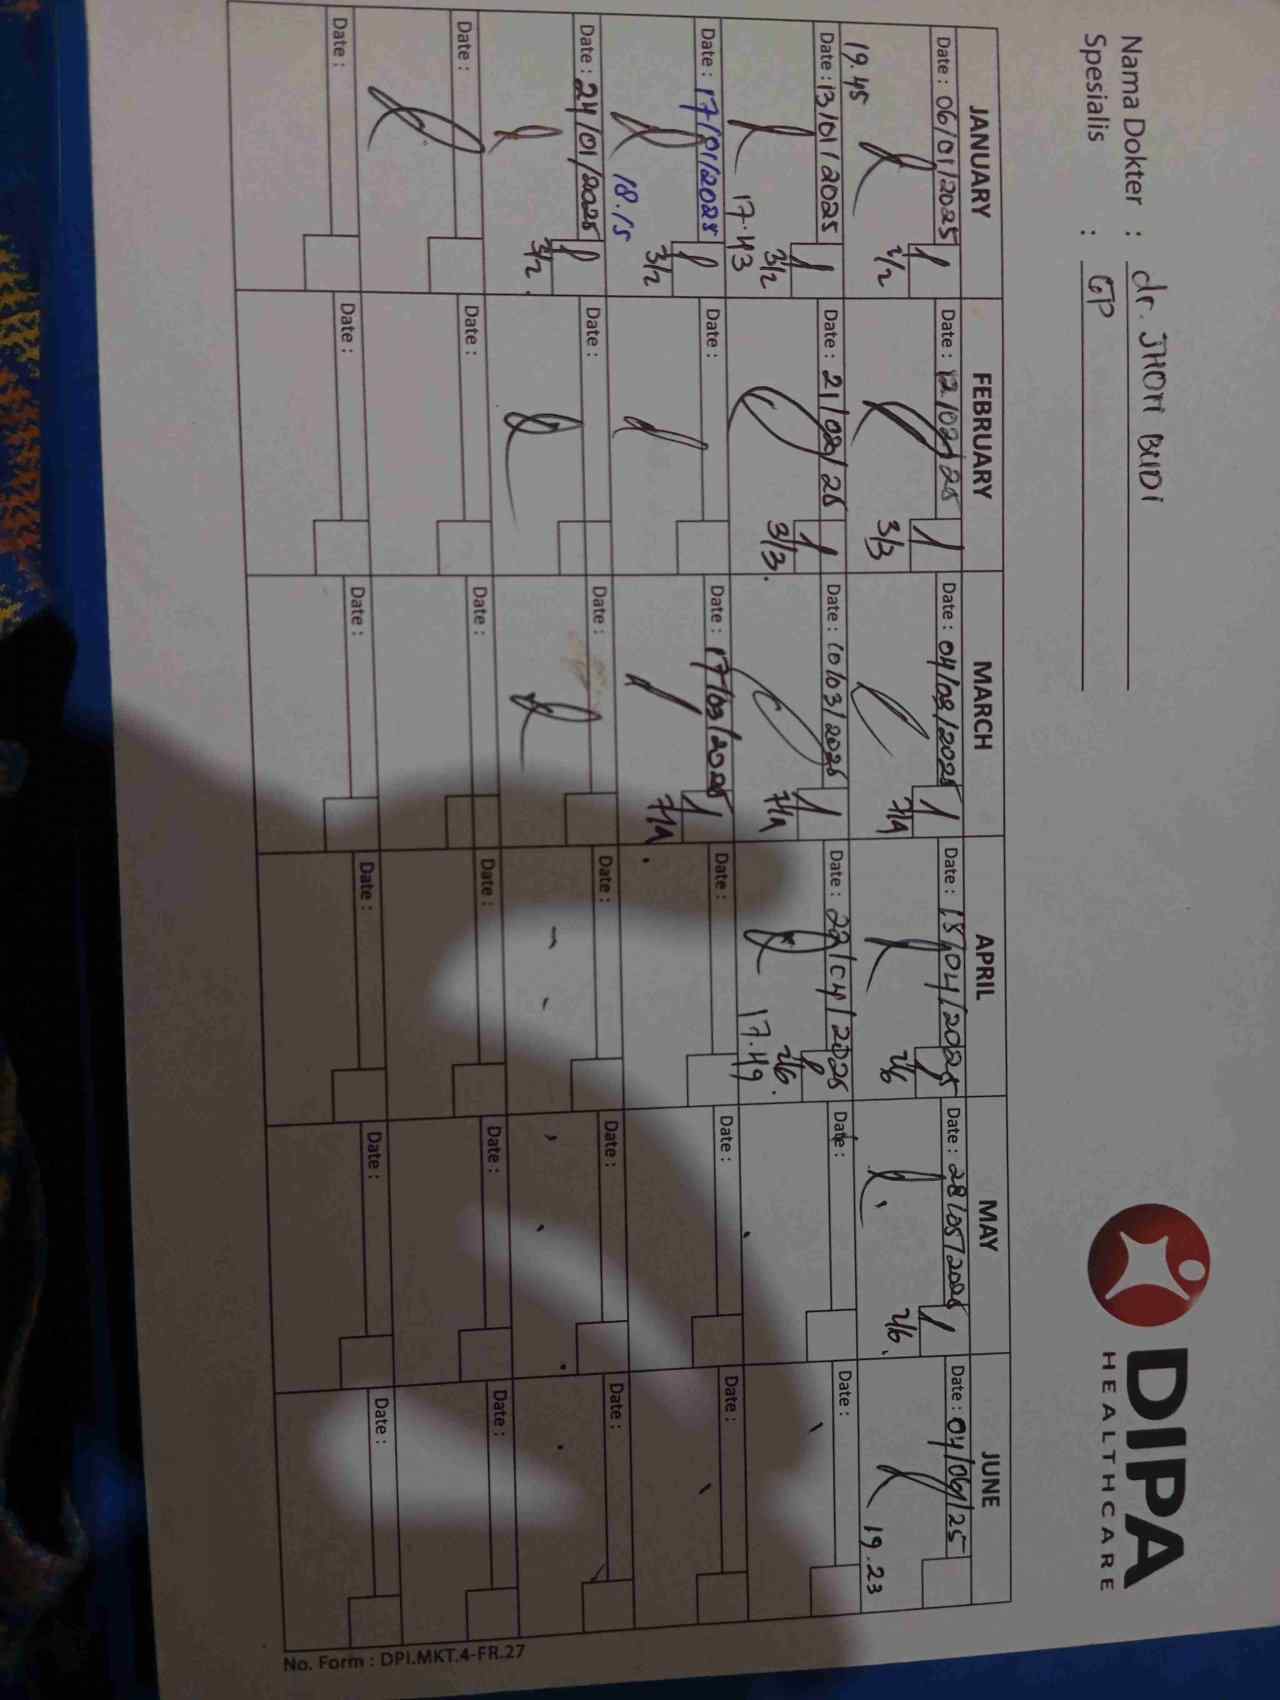 Nama Dokter : dr. JHON BUDI
Spesialis : GP
DIPA
HEALTHCARE
JANUARY FEBRUARY MARCH APRIL MAY JUNE
Date : 06/01/2025 Date : 12/02/25 Date : 04/03/2025 Date : 15/04/2025 Date : 28/05/2025 Date : 04/06/25
19.45 3/2 3/3 7/4 2/6 2/6. 19.23
Date : 13/01/2025 Date : 21/02/25 Date : 10/03/2025 Date : 22/04/2025 Date : Date :
17.43 3/2 3/3. 7/4 2/6. 17.49
Date : 17/01/2025 Date : Date : 17/03/2025 Date : Date : Date :
18.15 3/2 7/4
Date : 24/01/2025 Date : Date : Date : Date : Date :
3/2.
Date : Date : Date : Date : Date : Date :
Date : Date : Date : Date : Date : Date :
No. Form : DPI.MKT.4-FR.27